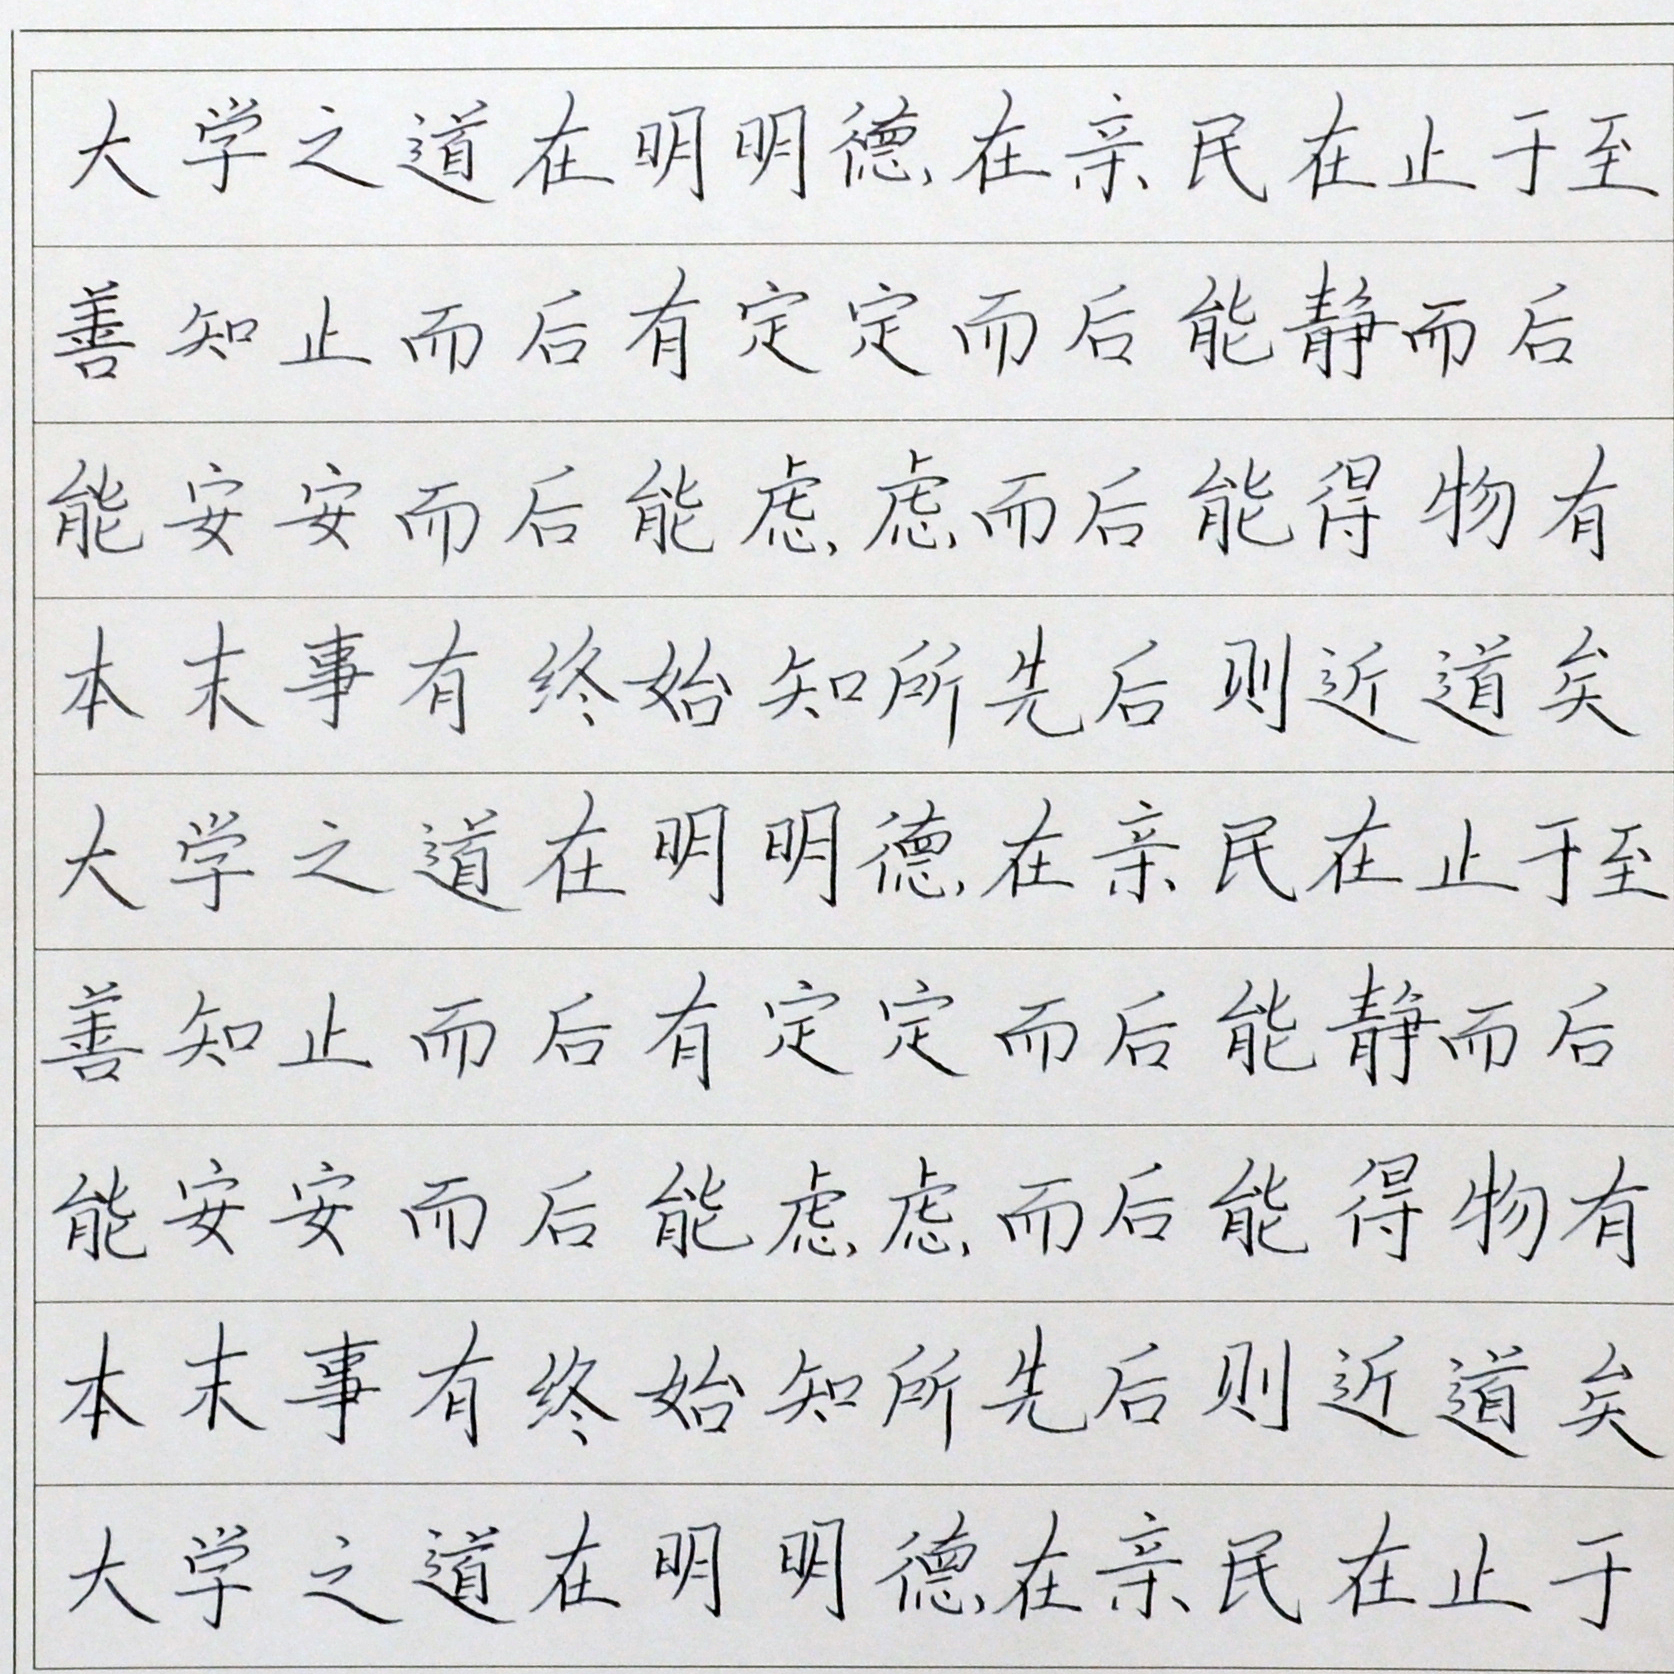 大学之道在明明德在亲民在止于至
善知止而后有定定而后能静而后
能安安而后能虑虑而后能得物有
本末事有终始知所先后则近道矣
大学之道在明明德在亲民在止于至
善知止而后有定定而后能静而后
能安安而后能虑虑而后能得物有
本末事有终始知所先后则近道矣
大学之道在明明德在亲民在止于